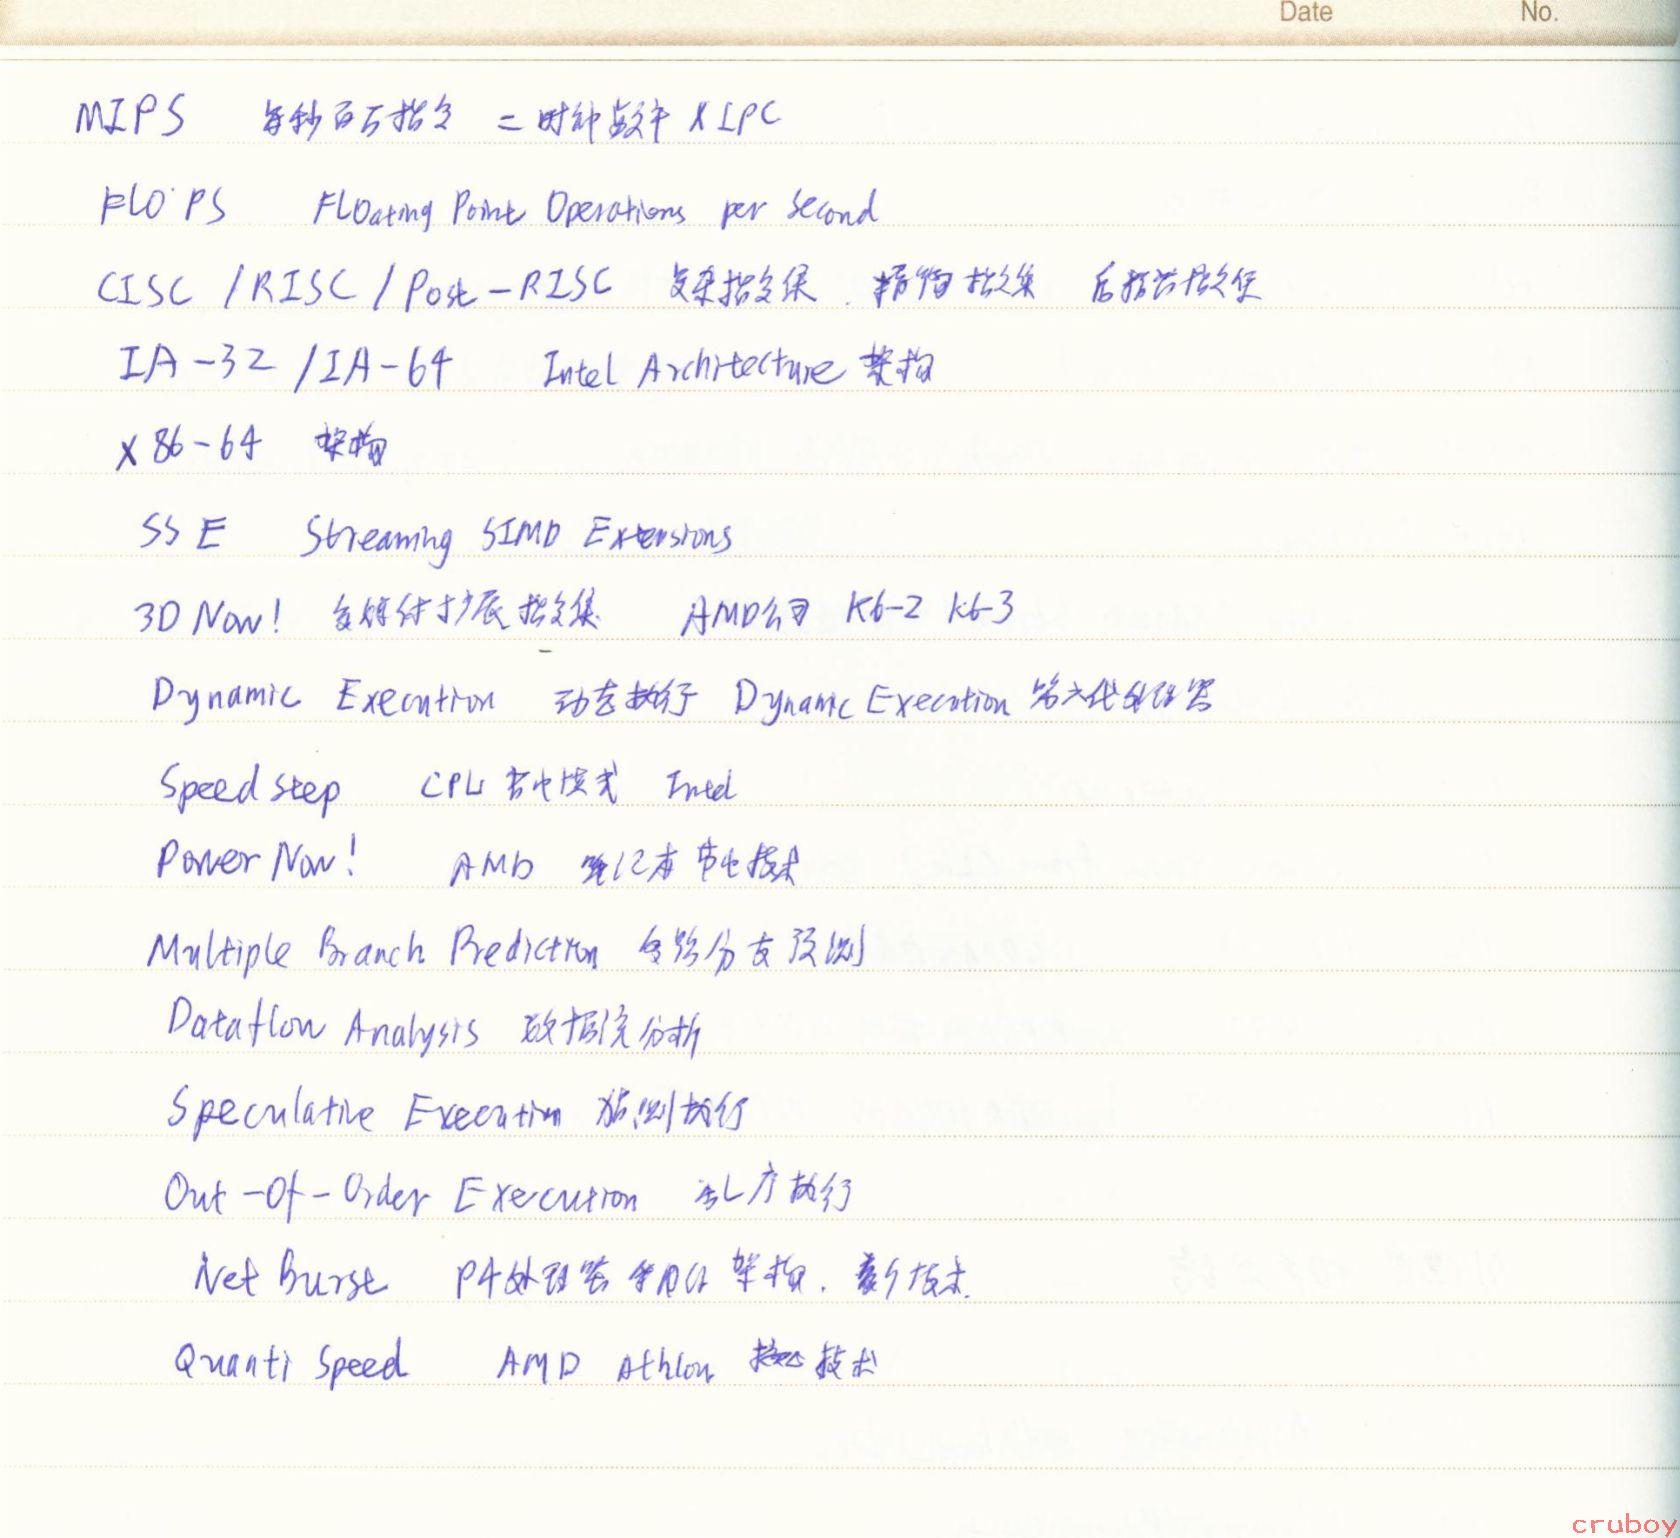 Date No.
MIPS 每秒百万指令 = 时钟频率 X IPC
FLOPS FLOating Point Operations per Second
CISC / RISC / Post-RISC 复杂指令集. 精简指令集 后精简指令集
IA-32 / IA-64 Intel Architecture 架构
X86-64 架构
SSE Streaming SIMD Extensions
3D Now! 多媒体扩展指令集 AMD公司 K6-2 K6-3
Dynamic Execution 动态执行 Dynamic Execution 第六代处理器
Speed Step CPU 节电模式 Intel
Power Now! AMD 笔记本节电技术
Multiple Branch Prediction 多路分支预测
Dataflow Analysis 数据流分析
Speculative Execution 猜测执行
Out-Of-Order Execution 乱序执行
Net Burst P4处理器 使用的 架构. 技术.
Quanti Speed AMD Athlon 技术
cruboy